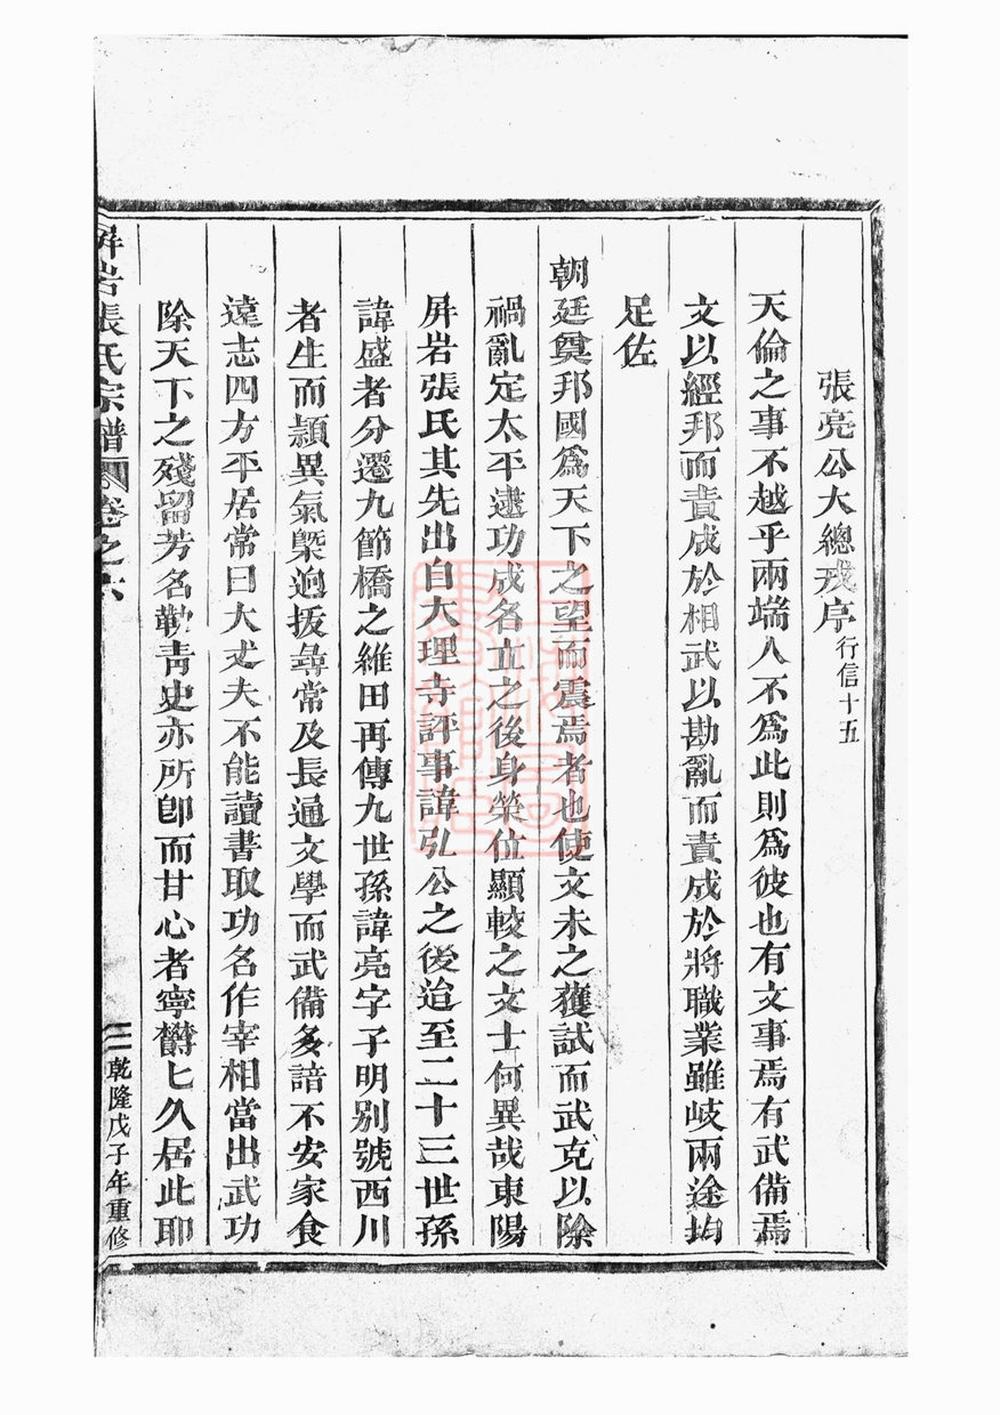 張亮公大總戎序行信十五
天倫之事不越乎兩端人不為此則為彼也有文事焉有武備焉
文以經邦而責成於相武以勘亂而責成於將職業雖岐兩途均
足佐
朝廷奠邦國為天下之望而震焉者也使文未之獲試而武克以除
禍亂定太平建功成名立之後身榮位顯較之文士何異哉東陽
屏岩張氏其先出自大理寺評事諱弘公之後迨至二十三世孫
諱盛者分遷九節橋之維田再傳九世孫諱亮字子明別號西川
者生而穎異氣槩逈拔尋常及長通文學而武備多諳不安家食
遠志四方平居常曰大丈夫不能讀書取功名作宰相當出武功
除天下之殘留芳名勒青史亦所卽而甘心者寧欝匕久居此耶
屏岩張氏宗譜
卷之六
二
乾隆戊子年重修